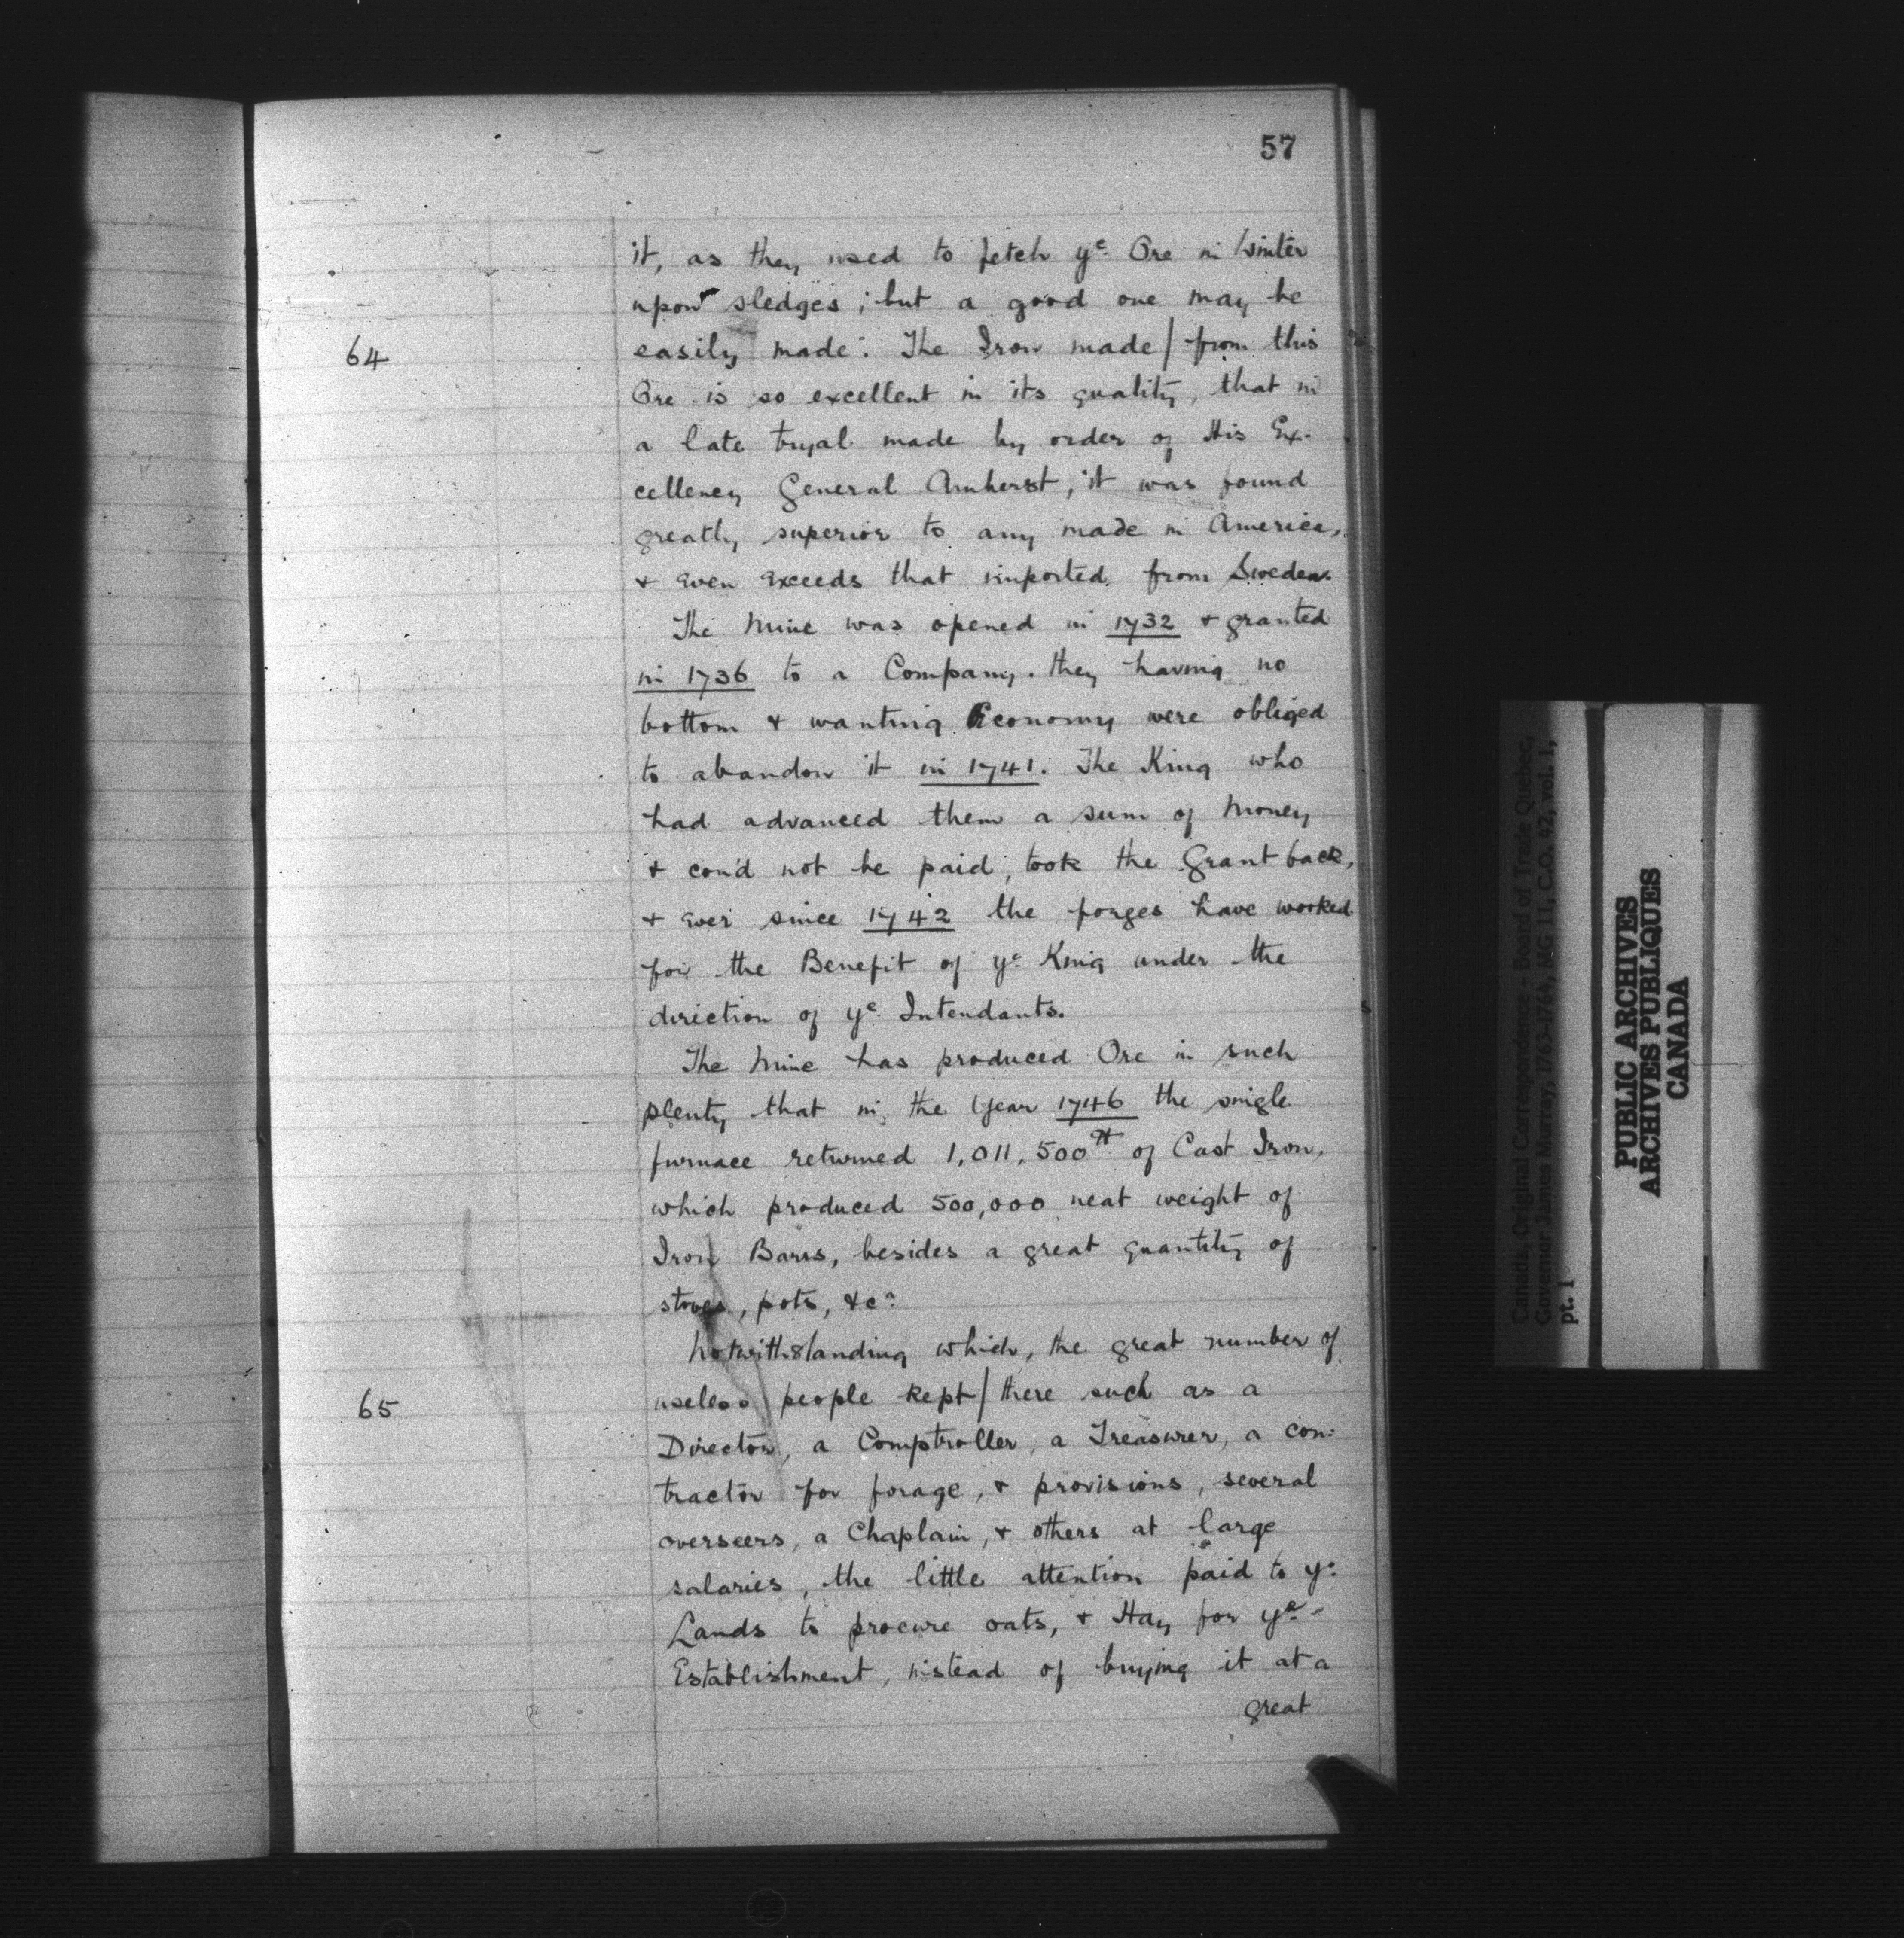 57
it, as they used to fetch yᵉ Ore in Winter
upon sledges; but a good one may be
64
easily made. The Iron made / from this
Ore is so excellent in its quality, that in
a late tryal made by order of His Ex-
cellency General Amherst, it was found
greatly superior to any made in America,
& even exceeds that imported from Sweden.
The Mine was opened in 1732 & granted
in 1736 to a Company. they having no
bottom & wanting Œconomy were obliged
to abandon it in 1741. The King who
had advanced them a sum of Money
& cou'd not be paid, took the Grant back,
& ever since 1742 the forges have worked
for the Benefit of yᵉ King under the
direction of yᵉ Intendants.
The Mine has produced Ore in such
plenty that in the Year 1746 the single
furnace returned 1,011,500 of Cast Iron,
which produced 500,000 neat weight of
Iron Barrs, besides a great quantity of
stoves, pots, &cᵃ
Notwithstanding which, the great number of
65
useless people kept / there such as a
Director, a Comptroller, a Treasurer, a con=
tractor for forage, & provisions, several
overseers, a Chaplain, & others at large
salaries, the little attention paid to yᵉ
Lands to procure oats, & Hay for yᵉ
Establishment, instead of buying it at a
great
Canada, Original Correspondence - Board of Trade Quebec,
Governor James Murray, 1763-1764, MG 11, C.O. 42, vol. 1,
pt. 1
PUBLIC ARCHIVES
ARCHIVES PUBLIQUES
CANADA